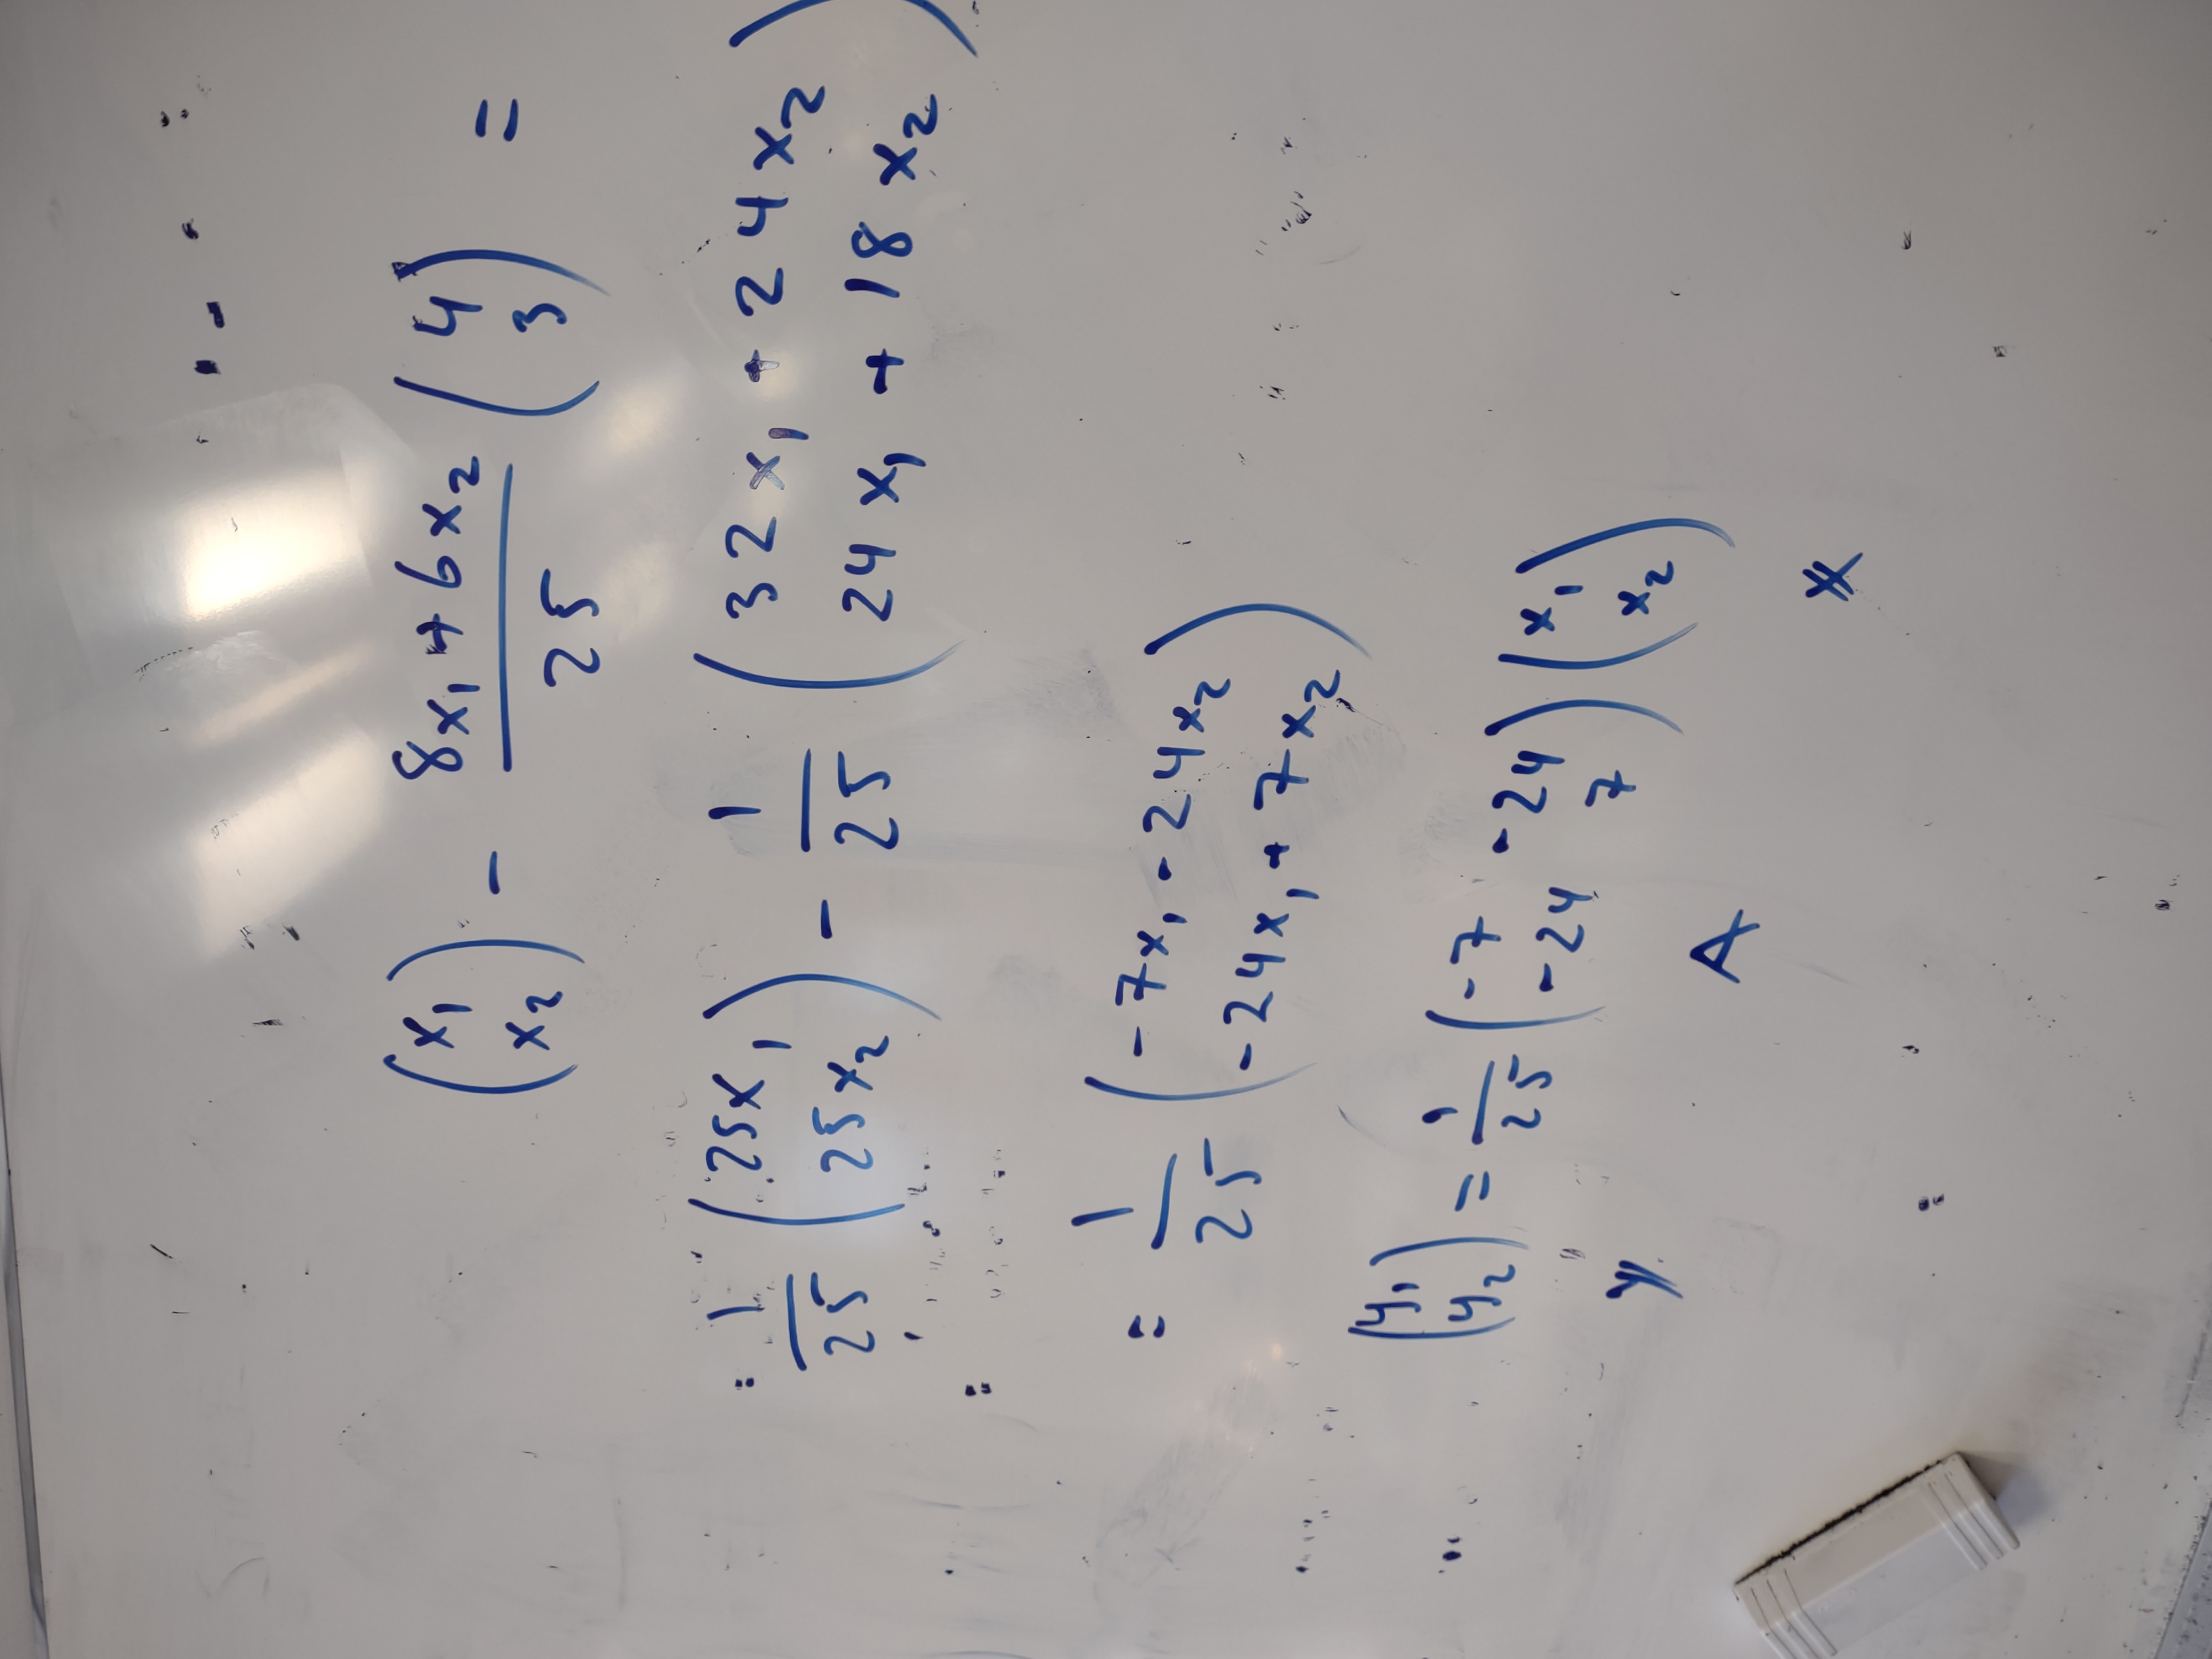 (x₁ x₂) - (8x₁ + 6x₂)/25 (4 3) =
= 1/25 (25x₁ 25x₂) - 1/25 (32x₁ + 24x₂ 24x₁ + 18x₂)
= 1/25 (-7x₁ - 24x₂ -24x₁ + 7x₂)
(y₁ y₂) = 1/25 (-7 -24 -24 7) (x₁ x₂)
𝕪 A 𝕩